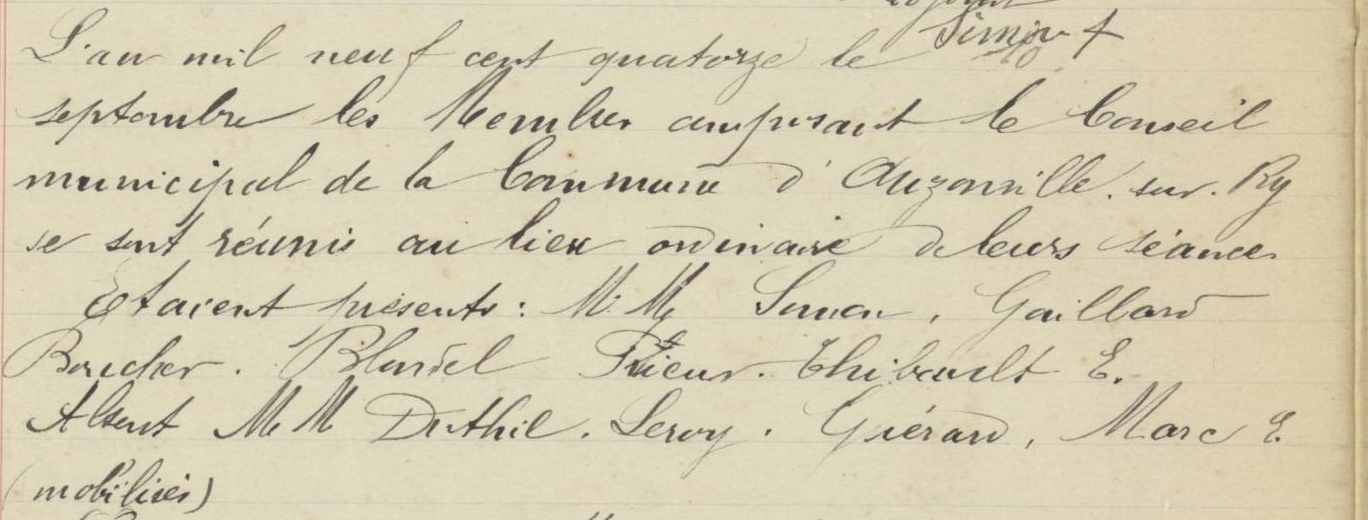 adjoint
Simon
L'an mil neuf cent quatorze le
septembre les Membres composant le Conseil
municipal de la Commune d'Auzouville. sur. Ry
se sont réunis au lieu ordinaire de leurs séances
Etaient présents : M. M. Simon, Gaillard
Boucher. Blondel Prieur. Thibault E.
Absent M M Duthil. Leroy. Guérard, Marc E.
(mobilisés)